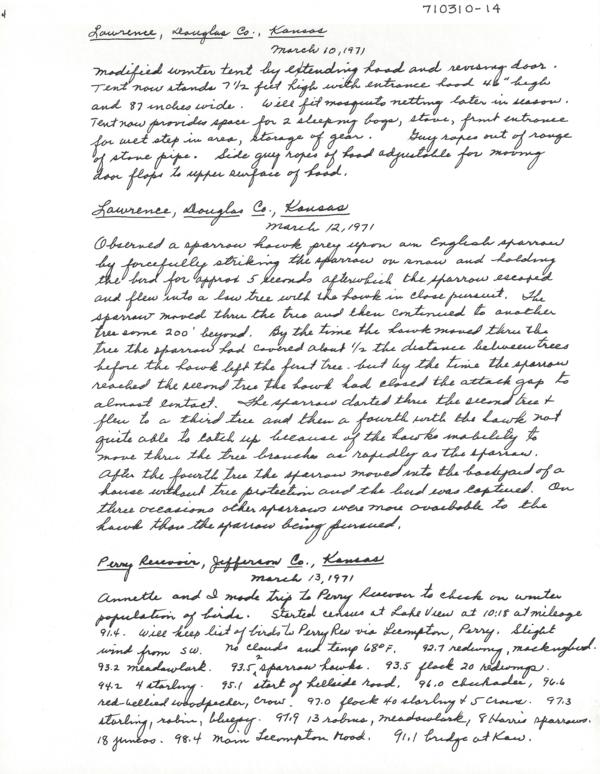 710310-14
Lawrence, Douglas Co., Kansas
March 10, 1971
Modified winter tent by extending hood and revising door.
Tent now stands 7 1/2 feet high with entrance hood 46" high
and 87 inches wide. Will fit mosquito netting later in season.
Tent now provides space for 2 sleeping bags, stove, front entrance
for wet step in area, storage of gear. Guy ropes out of range
of stove pipe. Side guy ropes of hood adjustable for moving
door flaps to upper surface of hood.
Lawrence, Douglas Co., Kansas
March 12, 1971
Observed a sparrow hawk prey upon an English sparrow
by forcefully striking the sparrow on snow and holding
the bird for approx 5 seconds afterwhich the sparrow escaped
and flew into a low tree with the hawk in close pursuit. The
sparrow moved thru the tree and then continued to another
tree some 200' beyond. By the time the hawk moved thru the
tree the sparrow had covered about 1/2 the distance between trees
before the hawk left the first tree. but by the time the sparrow
reached the second tree the hawk had closed the attack gap to
almost contact. The sparrow darted thru the second tree &
flew to a third tree and then a fourth with the hawk not
quite able to catch up because of the hawks inability to
move thru the tree branches as rapidly as the sparrow.
After the fourth tree the sparrow moved into the backyard of a
house without tree protection and the bird was captured. On
three occasions other sparrows were more available to the
hawk than the sparrow being pursued.
Perry Reservoir, Jefferson Co., Kansas
March 13, 1971
Annette and I made trip to Perry Reservoir to check on winter
population of birds. Started census at Lake View at 10:18 at mileage
91.4. Will keep list of birds to Perry Res via Lecompton, Perry. Slight
wind from SW. No clouds and temp 68°F. 92.7 redwing, mockingbird.
93.2 meadowlark. 93.5 2 sparrow hawks. 93.5 flock 20 redwings.
94.2 4 starling. 95.1 start of hillside road. 96.0 chickadee, 96.6
red-bellied woodpecker, crow. 97.0 flock 40 starling & 5 crows. 97.3
starling, robin, bluejay. 97.9 13 robins, meadowlark, 8 Harris sparrows.
18 juncos. 98.4 main Lecompton Road. 91.1 bridge at Kaw.